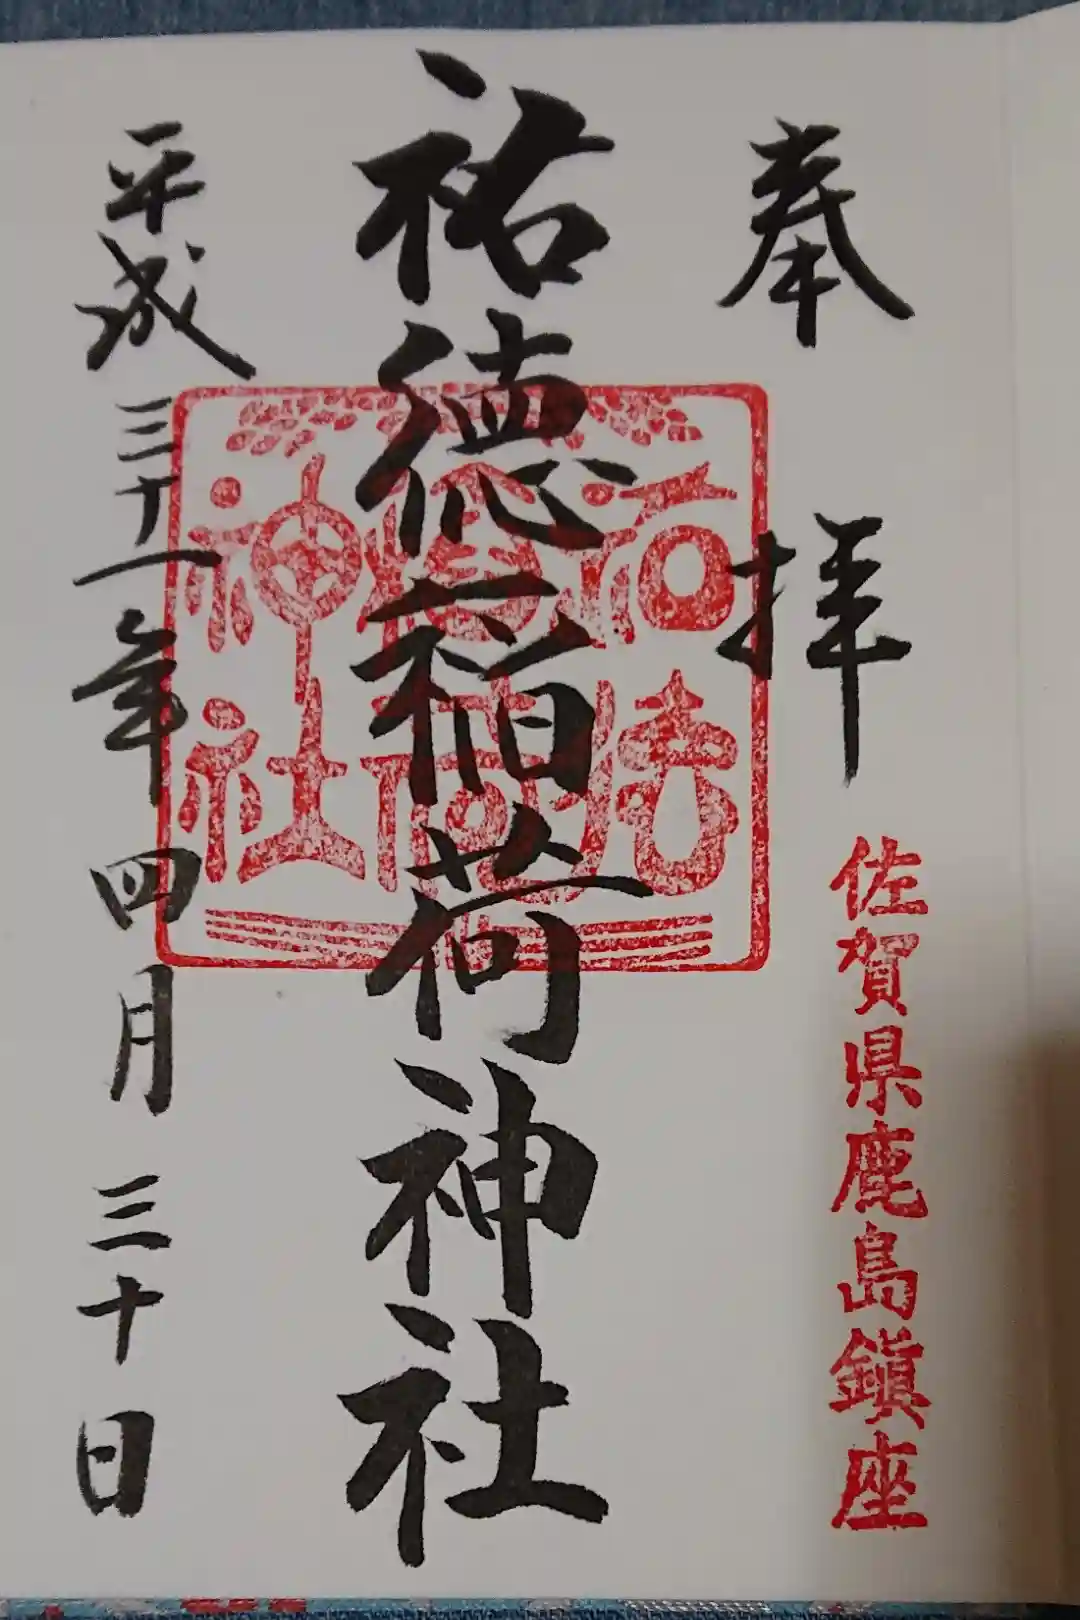 奉拝
佐賀県鹿島鎮座
祐徳稲荷神社
平成三十一年四月三十日